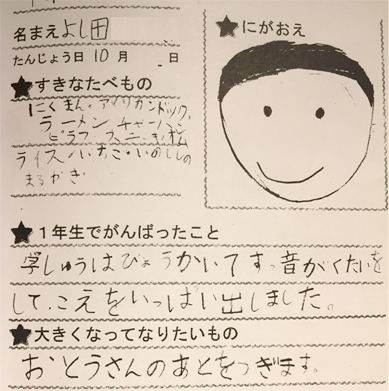 名まえよし田
★にがおえ
たんじょう日10月 日
★すきなたべもの
にくまん。アメリカンドック、
ラーメン チャーハン
ピラフ
ライス いちご いのししの
まるやき
★1年生でがんばったこと
学しゅうはぴょうかいで 音がくたいを
して、こえをいっぱい出しました。
★大きくなってなりたいもの
おとうさんのあとをつぎます。